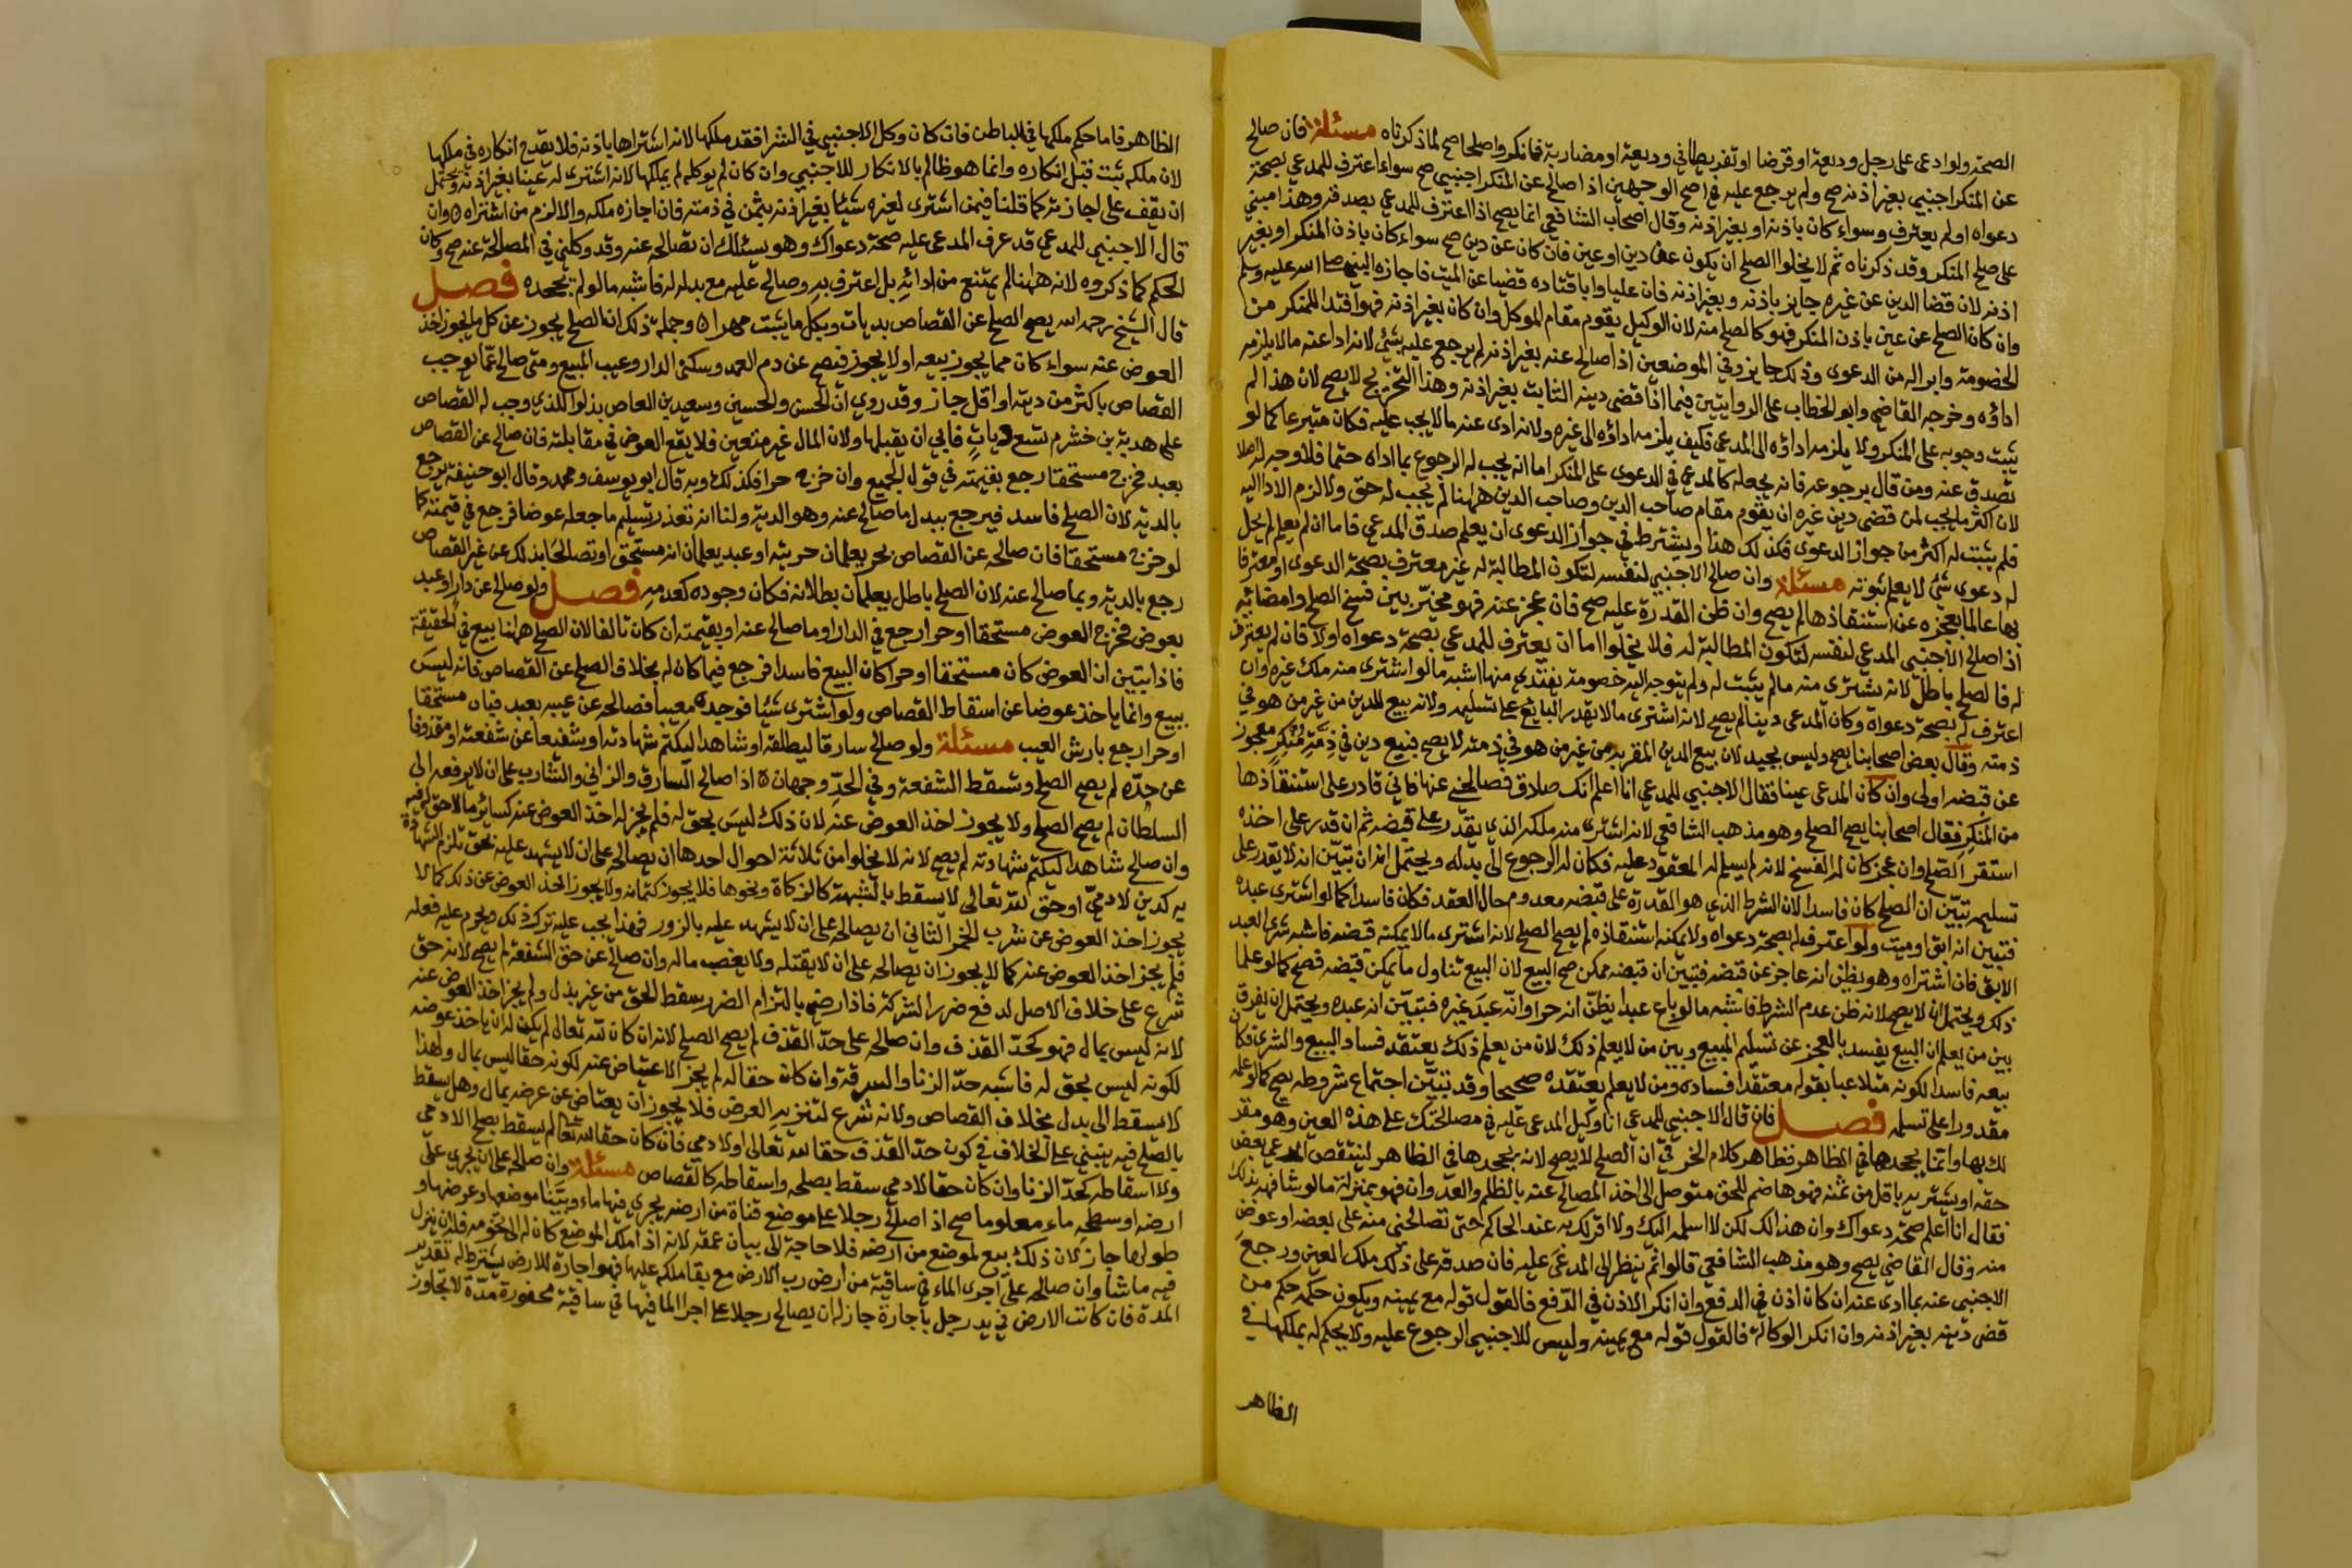 الصحة ولو ادعى على رجل وديعة او قرضا او تفريطا في وديعة او مضاربة فانكر واصطلحا صح لما ذكرناه مسئلة فان صالح
عن المنكر اجنبي بغير اذنه صح ولم يرجع عليه في اصح الوجهين اذا صالح عن المنكر اجنبي صح سواء اعترف للمدعي بصحة
دعواه او لم يعترف وسواء كان باذنه او بغير اذنه وقال اصحاب الشافعي انما يصح اذا اعترف للمدعي بصدقه وهذا مبني
على صلح المنكر وقد ذكرناه ثم لا يخلوا الصلح ان يكون عن دين او عين فان كان عن دين صح سواء كان باذن المنكر او بغير
اذنه لان قضا الدين عن غيره جايز باذنه وبغير اذنه فان عليا وابا قتادة قضيا عن الميت فاجازه النبي صلى الله عليه وسلم
وان كان الصلح عن عين باذن المنكر فهو كالصلح منه لان الوكيل يقوم مقام الموكل وان كان بغير اذنه فهو افتدا للمنكر من
الخصومة وابرا له من الدعوى وذلك جايز وفي الموضعين اذا صالح عنه بغير اذنه لم يرجع عليه بشئ لانه ادا عنه مالا يلزمه
اداؤه وخرجه القاضي وابو الخطاب على الروايتين فيما اذا قضى دينه الثابت بغير اذنه وهذا التخريج لا يصح لان هذا لم
يثبت وجوبه على المنكر ولا يلزمه اداؤه الى المدعي فكيف يلزمه اداؤه الى غيره ولانه ادى عنه مالا يجب عليه فكان متبرعا كما لو
تصدق عنه ومن قال برجوعه فانه يجعله كالمدعي في الدعوى على المنكر اما انه يجب له الرجوع بما اداه حتما فلا وجه له اصلا
لان اكثر ما يجب لمن قضى دين غيره ان يقوم مقام صاحب الدين وصاحب الدين ههنا لم يجب له حق ولا لزم الادا اليه
فلم يثبت له اكثر من جواز الدعوى فكذلك هذا ويشترط في جواز الدعوى ان يعلم صدق المدعي فاما ان لم يعلم لم يحل
له دعوى شئ لا يعلم ثبوته مسئلة وان صالح الاجنبي لنفسه لتكون المطالبة له غير معترف بصحة الدعوى او معترفا
بها عالما بعجزه عن استنقاذها لم يصح وان ظن القدرة عليه صح فان عجز عنه فهو مخير بين فسخ الصلح وامضائه
اذا صالح الاجنبي المدعي لنفسه لتكون المطالبة له فلا يخلوا اما ان يعترف للمدعي بصحة دعواه او لا فان لم يعترف
له فالصلح باطل لانه يشتري منه ما لم يثبت له ولم يتوجه اليه خصومة يفتدي منها اشبه مالو اشترى منه ملك غيره وان
اعترف له بصحة دعواه وكان المدعى دينا لم يصح لانه اشترى مالا يقدر البايع على تسليمه ولانه بيع للدين من غير من هو في
ذمته وقال بعض اصحابنا يصح وليس بجيد لان بيع الدين المقر به من غير من هو في ذمته لا يصح فبيع دين في ذمة منكر معجوز
عن قبضه اولى وان كان المدعى عينا فقال الاجنبي للمدعي انا اعلم انك صادق فصالحني عنها فاني قادر على استنقاذها
من المنكر فقال اصحابنا يصح الصلح وهو مذهب الشافعي لانه اشترى منه ملكه الذي يقدر على قبضه ثم ان قدر على اخذه
استقر الصلح وان عجز كان له الفسخ لانه لم يسلم له المعقود عليه فكان له الرجوع الى بدله ويحتمل انه ان تبين انه لا يقدر على
تسليمه تبين ان الصلح كان فاسدا لان الشرط الذي هو القدرة على قبضه معدوم حال العقد فكان فاسدا كما لو اشترى عبده
فتبين انه ابق او ميت ولو اعترف له بصحة دعواه ولا يمكنه استنقاذه لم يصح الصلح لانه اشترى مالا يمكنه قبضه فاشبه شرى العبد
الابق فان اشتراه وهو يظن انه عاجز عن قبضه فتبين ان قبضه ممكن صح البيع لان البيع تناول ما يمكن قبضه فصح كما لو علما
ذلك ويحتمل ان لا يصح لانه ظن عدم الشرط فاشبه مالو باع عبدا يظن انه حر او انه عبد غيره فتبين انه عبده ويحتمل ان يفرق
بين من يعلم ان البيع يفسد بالعجز عن تسليم المبيع وبين من لا يعلم ذلك لان من يعلم ذلك يعتقد فساد البيع والشرى فكان
بيعه فاسدا لكونه متلاعبا بقوله معتقدا فساده ومن لا يعلم يعتقده صحيحا وقد تبين اجتماع شروطه يصح كما لو علمه
مقدورا على تسلمه فصل فان قال الاجنبي للمدعي انا وكيل المدعى عليه في مصالحتك على هذه العين وهو مقر
لك بها وانما يجحدها في الظاهر فظاهر كلام الخرقي ان الصلح لا يصح لانه يجحدها في الظاهر لينتقص المدعي بعض
حقه او يشتريه باقل من ثمنه فهو هاضم للحق متوصل الى اخذ المصالح عنه بالظلم والعدوان فهو بمنزلة مالو شافهه بذلك
فقال انا اعلم صحة دعواك وان هذا لك لكن لا اسلمه اليك ولا اقر لك به عند الحاكم حتى تصالحني منه على بعضه او عوض
منه وقال القاضي يصح وهو مذهب الشافعي قالوا ثم ينظر الى المدعى عليه فان صدقه على ذلك ملك العين ورجع
الاجنبي عنه بما ادى عنه ان كان اذن في الدفع وان انكر الاذن في الدفع فالقول قوله مع يمينه ويكون حكمه حكم من
قضى دينه بغير اذنه وان انكر الوكالة فالقول قوله مع يمينه وليس للاجنبي الرجوع عليه ولا يحكم له بملكها في
الظاهر
الظاهر فاما حكم ملكها في الباطن فان كان وكل الاجنبي في الشرا فقد ملكها لانه اشتراها باذنه فلا يقدح انكاره في ملكها
لان ملكه ثبت قبل انكاره وانما هو ظالم بالانكار للاجنبي وان كان لم يوكله لم يملكها لانه اشترى له عينا بغير اذنه ويحتمل
ان يقف على اجازته كما قلنا فيمن اشترى لغيره شيئا بغير اذنه بثمن في ذمته فان اجازه ملكه والا لزم من اشتراه وان
قال الاجنبي للمدعي قد عرف المدعى عليه صحة دعواك وهو يسئلك ان تصالحه عنه وقد وكلني في المصالحة عنه صح وكان
الحكم كما ذكروه لانه ههنا لم يمتنع من ادائه بل اعترف به وصالح عليه مع بذله له فاشبه مالو لم يجحده فصل
قال الشيخ رحمه الله يصح الصلح عن القصاص بديات وبكل ما يثبت مهرا وجملة ذلك ان الصلح يجوز عن كل ما يجوز اخذ
العوض عنه سواء كان مما يجوز بيعه او لا يجوز فيصح عن دم العمد وسكنى الدار وعيب المبيع ومتى صالح عما يوجب
القصاص باكثر من ديته او اقل جاز وقد روي ان الحسن والحسين وسعيد بن العاص بذلوا للذي وجب له القصاص
على هدبة بن خشرم تسع ديات فابى ان يقبلها ولان المال غير متعين فلا يقع العوض في مقابلته فان صالح عن القصاص
بعبد فخرج مستحقا رجع بقيمته في قول الجميع وان خرج حرا فكذلك وبه قال ابو يوسف ومحمد وقال ابو حنيفة يرجع
بالدية لان الصلح فاسد فيرجع ببدل ما صالح عنه وهو الدية ولنا انه تعذر تسليم ما جعله عوضا فرجع في قيمته كما
لو خرج مستحقا فان صالحه عن القصاص بحر يعلمان حريته او عبد يعلمان انه مستحق او تصالحا بذلك عن غير القصاص
رجع بالدية وبما صالح عنه لان الصلح باطل يعلمان بطلانه فكان وجوده كعدمه فصل ولو صالح عن دار او عبد
بعوض فخرج العوض مستحقا او حرا رجع في الدار او ما صالح عنه او بقيمته ان كان تالفا لان الصلح ههنا بيع في الحقيقة
فاذا تبين ان العوض كان مستحقا او حرا كان البيع فاسدا فرجع فيما كان له بخلاف الصلح عن القصاص فانه ليس
ببيع وانما ياخذ عوضا عن اسقاط القصاص ولو اشترى شيئا فوجده معيبا فصالحه عن عيبه بعبد فبان مستحقا
او حرا رجع بارش العيب مسئلة ولو صالح سارقا ليطلقه او شاهدا ليكتم شهادته او شفيعا عن شفعته او مقذوفا
عن حده لم يصح الصلح وتسقط الشفعة وفي الحد وجهان اذا صالح السارق والزاني والشارب على ان لا يرفعه الى
السلطان لم يصح الصلح ولا يجوز اخذ العوض عنه لان ذلك ليس بحق له فلم يجز له اخذ العوض عنه كسائر مالا حق له فيه
وان صالح شاهدا ليكتم شهادته لم يصح لانه لا يخلوا من ثلاثة احوال احدها ان يصالحه على ان لا يشهد عليه بحق تلزم الشهادة
به كدين لادمي او حق لله تعالى لا يسقط بالشبهة كالزكاة ونحوها فلا يجوز كتمانه ولا يجوز اخذ العوض عن ذلك كما لا
يجوز اخذ العوض عن شرب الخمر الثاني ان يصالحه على ان لا يشهد عليه بالزور فهذا يجب عليه ترك ذلك ويحرم عليه فعله
فلم يجز اخذ العوض عنه كما لا يجوز ان يصالحه على ان لا يقتله ولا يغصب ماله وان صالح عن حق الشفعة لم يصح لانه حق
شرع على خلاف الاصل لدفع ضرر الشركة فاذا رضي بالتزام الضرر سقط الحق من غير بذل ولم يجز اخذ العوض عنه
لانه ليس بمال فهو كحد القذف وان صالحه على حد القذف لم يصح الصلح لانه ان كان لله تعالى لم يكن له ان ياخذ عوضه
لكونه ليس بحق له فاشبه حد الزنا والسرقة وان كان حقا له لم يجز الاعتياض عنه لكونه حقا ليس بمال ولهذا
لا يسقط الى بدل بخلاف القصاص ولانه شرع لتنزيه العرض فلا يجوز ان يعتاض عن عرضه بمال وهل يسقط
بالصلح فيه ينبني على الخلاف في كون حد القذف حقا لله تعالى او لادمي فان كان حقا لله تعالى لم يسقط بصلح الادمي
ولا اسقاطه كحد الزنا وان كان حقا لادمي سقط بصلحه واسقاطه كالقصاص مسئلة وان صالحه على ان يجري على
ارضه او سطحه ماء معلوما صح اذا صالح رجلا على موضع قناة من ارضه يجري فيها ماء وبينا موضعها وعرضها و
طولها جاز لان ذلك بيع لموضع من ارضه فلا حاجة الى بيان عمقه لانه اذا ملك الموضع كان له الى تخومه فله ان ينزل
فيه ما شا وان صالحه على اجرى الماء في ساقية من ارض رب الارض مع بقا ملكه عليها فهو اجارة للارض يشترط له تقدير
المدة فان كانت الارض في يد رجل باجارة جاز له ان يصالح رجلا على اجرا الما فيها في ساقية محفورة مدة لا تجاوز